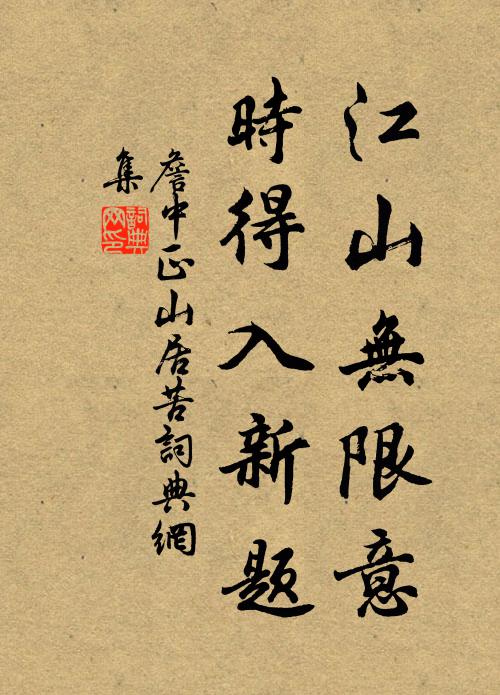 江山無限意
時得入新題
詹中正山居苦詞典網
集
詞典
网印